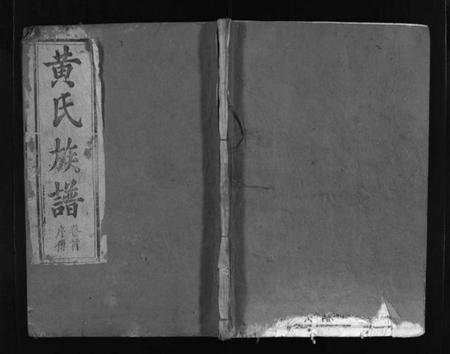 黃氏族譜
卷首
序傳